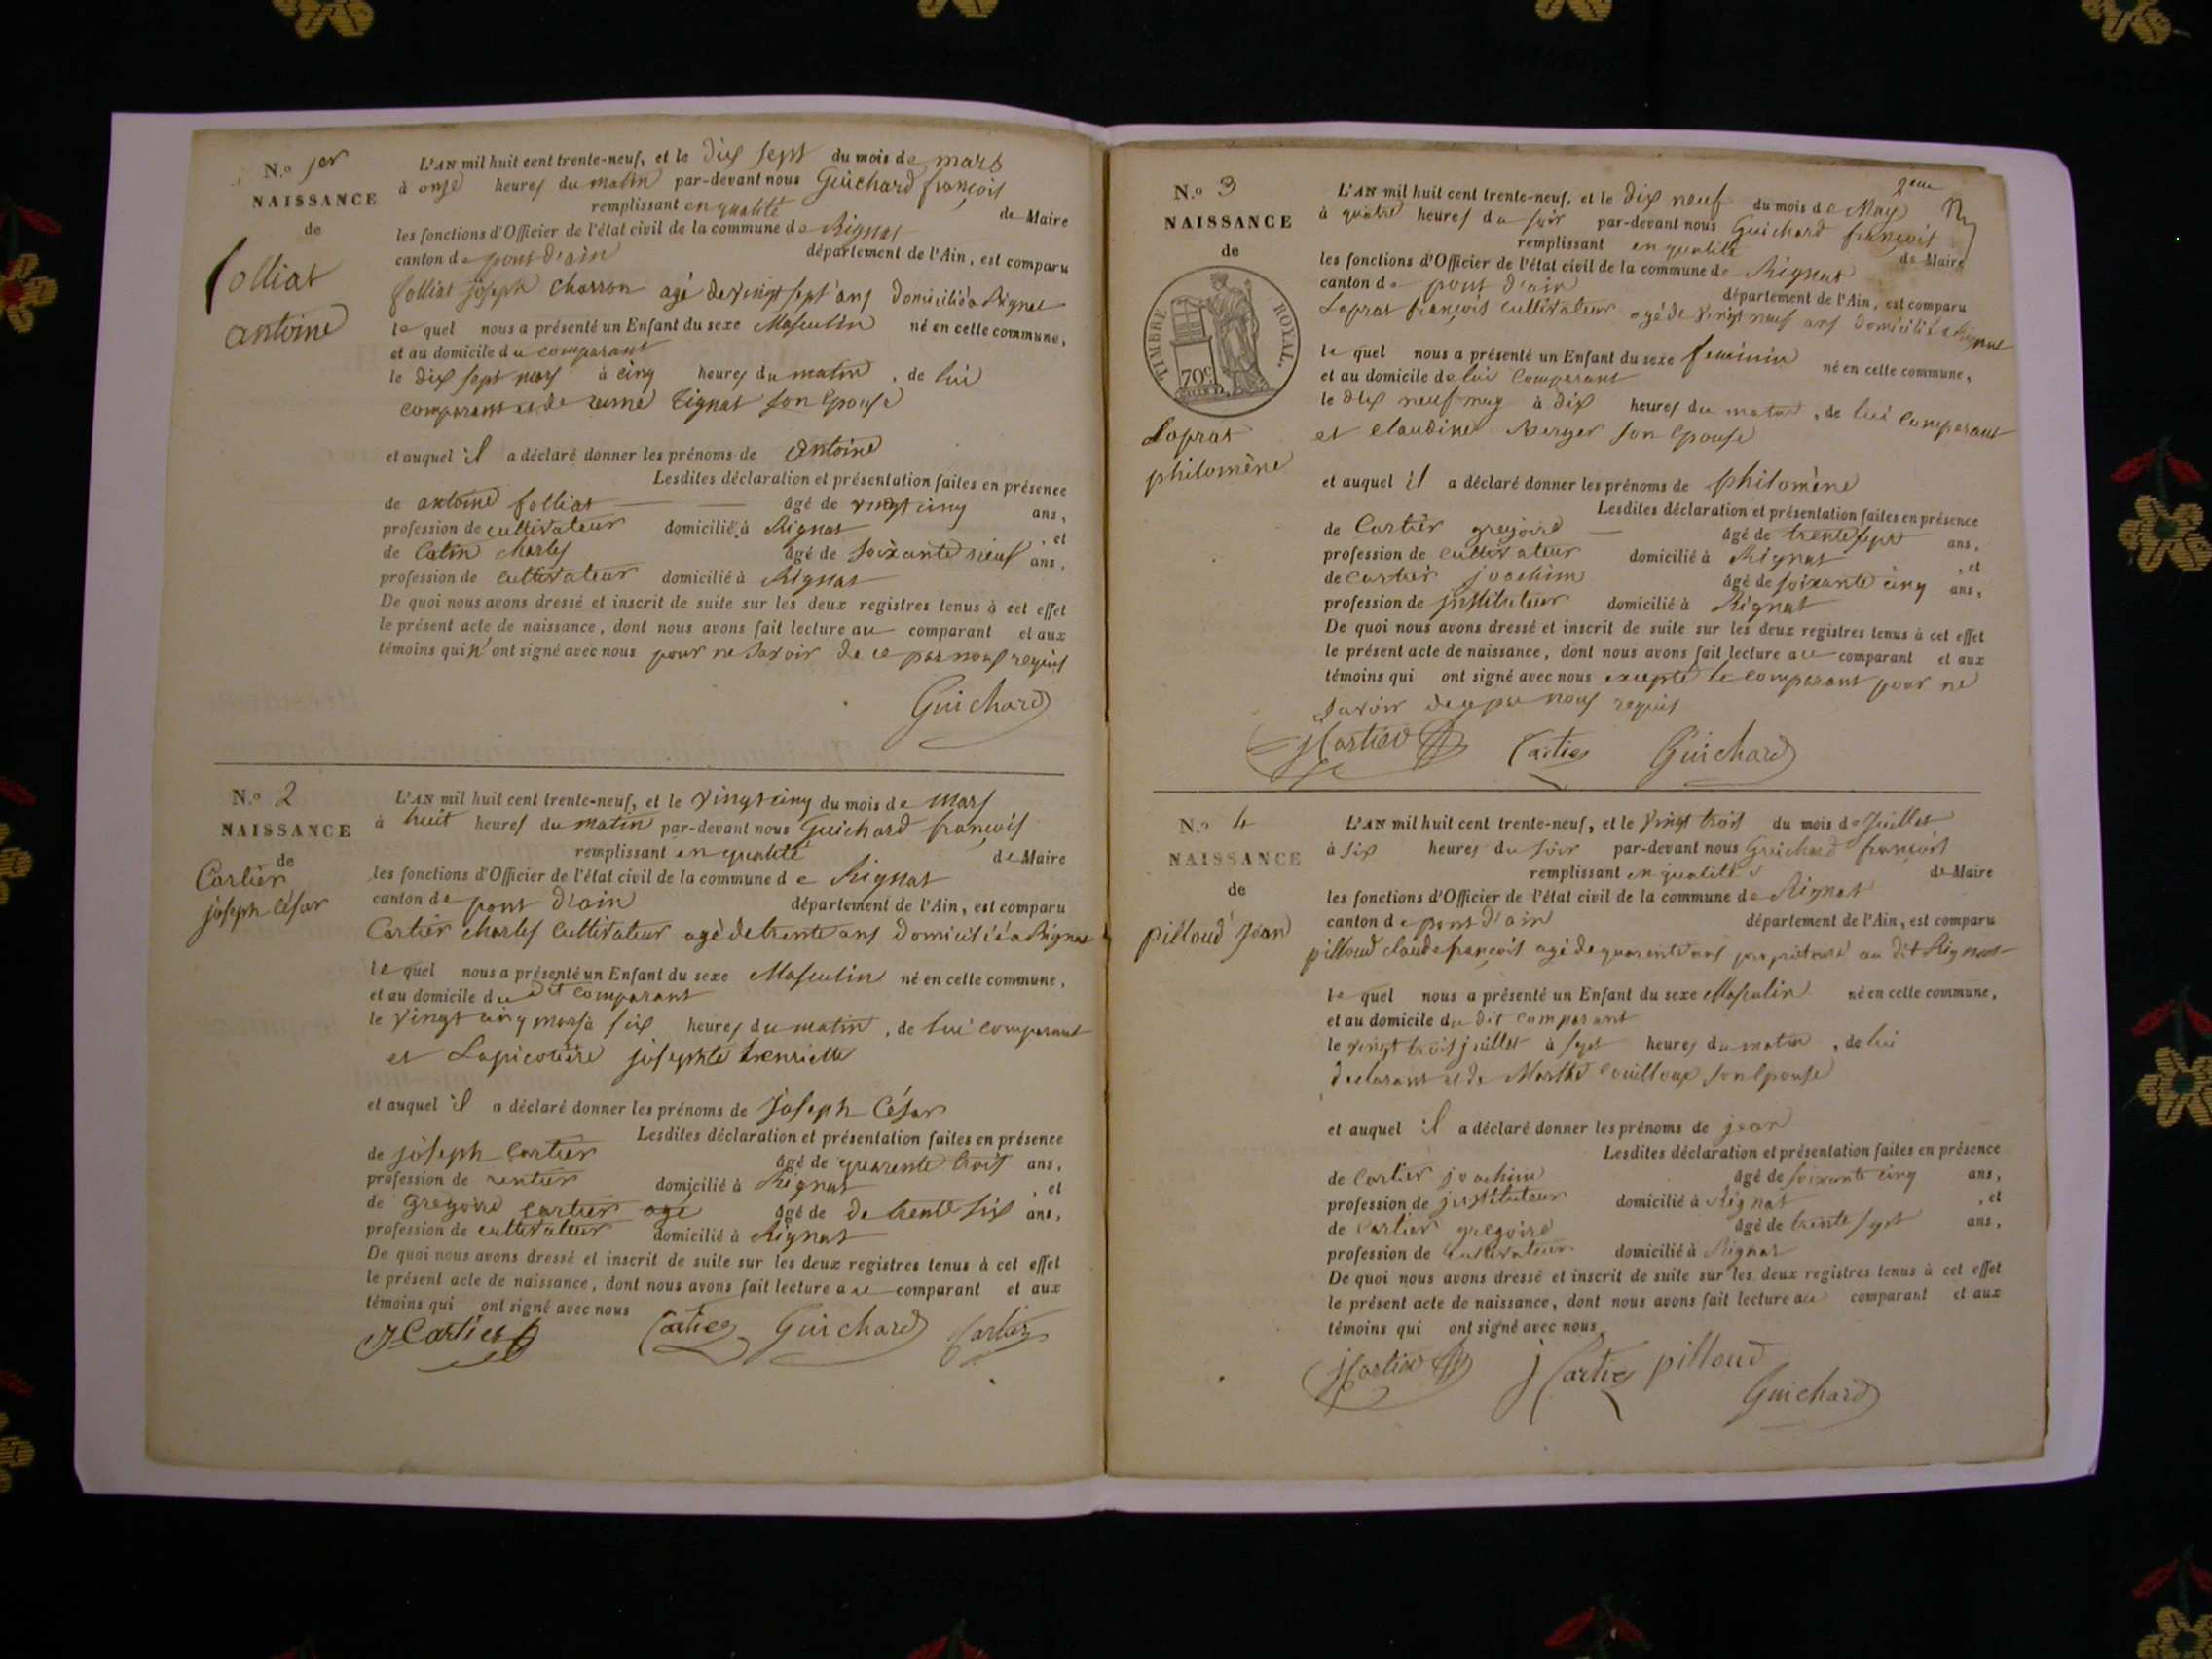 N.o 1er
NAISSANCE
de
folliat
antoine
L'AN mil huit cent trente-neuf, et le dix sept du mois de mars
à onze heures du matin par-devant nous Guichard françois
remplissant en qualité de Maire
les fonctions d'Officier de l'état civil de la commune de Rignat
canton de pont d'ain département de l'Ain, est comparu
folliat joseph charron agé de vingt sept ans domicilié a Rignat
le quel nous a présenté un Enfant du sexe Masculin né en cette commune,
et au domicile du comparant
le dix sept mars à cinq heures du matin, de lui
comparant et de son epouse
et auquel il a déclaré donner les prénoms de antoine
Lesdites déclaration et présentation faites en présence
de antoine folliat âgé de vingt cinq ans,
profession de cultivateur domicilié à Rignat, et
de Catin charles âgé de soixante neuf ans,
profession de cultivateur domicilié à Rignat
De quoi nous avons dressé et inscrit de suite sur les deux registres tenus à cet effet
le présent acte de naissance, dont nous avons fait lecture au comparant et aux
témoins qui n'ont signé avec nous pour ne savoir de ce par nous requis
Guichard
N.o 2
NAISSANCE
de
Cartier
joseph César
L'AN mil huit cent trente-neuf, et le vingt cinq du mois de mars
à huit heures du matin par-devant nous Guichard françois
remplissant en qualité de Maire
les fonctions d'Officier de l'état civil de la commune de Rignat
canton de pont d'ain département de l'Ain, est comparu
Cartier charles cultivateur agé de trente ans domicilié a Rignat
le quel nous a présenté un Enfant du sexe Masculin né en cette commune,
et au domicile du dit comparant
le vingt cinq mars à six heures du matin, de lui comparant
et Lapicotière josephte henriette
et auquel il a déclaré donner les prénoms de joseph César
Lesdites déclaration et présentation faites en présence
de joseph cartier âgé de quarente trois ans,
profession de rentier domicilié à Rignat, et
de Gregoire cartier age âgé de de trente six ans,
profession de cultivateur domicilié à Rignat
De quoi nous avons dressé et inscrit de suite sur les deux registres tenus à cet effet
le présent acte de naissance, dont nous avons fait lecture au comparant et aux
témoins qui ont signé avec nous
J Cartier Cartier Guichard Cartier
2eme
N.o 3
NAISSANCE
de
TIMBRE ROYAL.
70c
Lapras
philomène
L'AN mil huit cent trente-neuf, et le dix neuf du mois de May
à quatre heures du soir par-devant nous Guichard françois
remplissant en qualité de Maire
les fonctions d'Officier de l'état civil de la commune de Rignat
canton de pont d'ain département de l'Ain, est comparu
Lapras françois cultivateur agé de vingt neuf ans domicilié a Rignat
le quel nous a présenté un Enfant du sexe feminin né en cette commune,
et au domicile de lui comparant
le dix neuf may à dix heures du matin, de lui comparant
et claudine Berger son epouse
et auquel il a déclaré donner les prénoms de philomène
Lesdites déclaration et présentation faites en présence
de Cartier gregoire âgé de trente sept ans,
profession de cultivateur domicilié à Rignat, et
de cartier joachim âgé de soixante cinq ans,
profession de jnstituteur domicilié à Rignat
De quoi nous avons dressé et inscrit de suite sur les deux registres tenus à cet effet
le présent acte de naissance, dont nous avons fait lecture au comparant et aux
témoins qui ont signé avec nous excepté le comparant pour ne
savoir de ce par nous requis
J Cartier Cartier Guichard
N.o 4
NAISSANCE
de
pilloud jean
L'AN mil huit cent trente-neuf, et le vingt trois du mois de Juillet
à six heures du soir par-devant nous Guichard françois
remplissant en qualité de Maire
les fonctions d'Officier de l'état civil de la commune de Rignat
canton de pont d'ain département de l'Ain, est comparu
pilloud claude françois agé de quarente ans propriétaire au dit Rignat
le quel nous a présenté un Enfant du sexe Masculin né en cette commune,
et au domicile du dit comparant
le vingt trois juillet à sept heures du matin, de lui
declarant et de Marthe couilloux son epouse
et auquel il a déclaré donner les prénoms de jean
Lesdites déclaration et présentation faites en présence
de cartier joachim âgé de soixante cinq ans,
profession de jnstituteur domicilié à Rignat, et
de cartier gregoire âgé de trente sept ans,
profession de cultivateur domicilié à Rignat
De quoi nous avons dressé et inscrit de suite sur les deux registres tenus à cet effet
le présent acte de naissance, dont nous avons fait lecture au comparant et aux
témoins qui ont signé avec nous
J Cartier J Cartier pilloud
Guichard